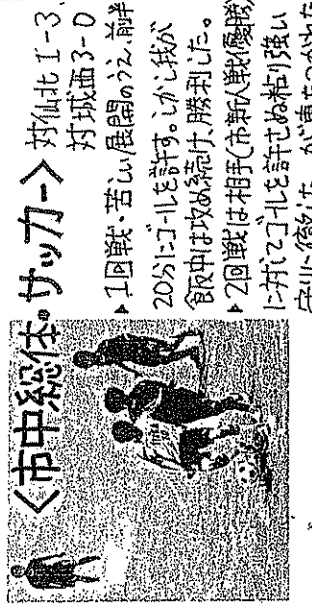 <市中総体・サッカー>
対仙北 1-3
対城西 3-0
▸1回戦・苦しい展開のうえ、前半
20分にゴールを許す。しかし我が
飯中は攻め続け、勝利した。
▸2回戦は相手(市新人戦優勝)
に対してゴールを許せぬ粘り強い
守りに徹した。が裏をつかれた